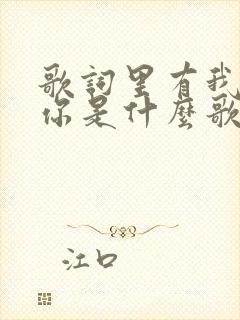 歌詞里有我
你是什麼歌
江口